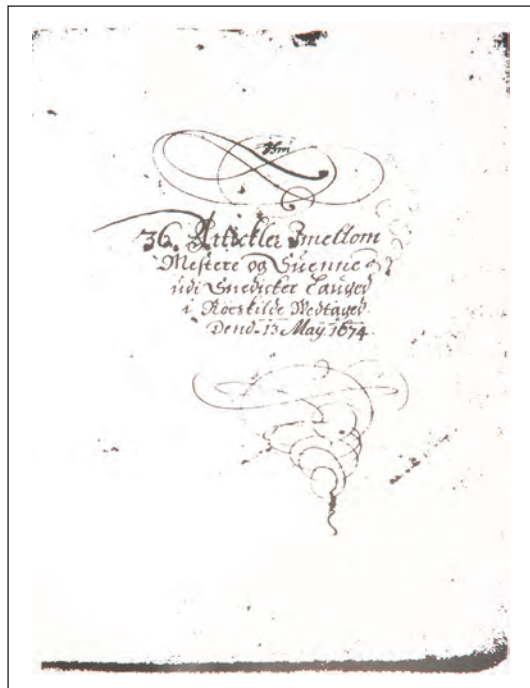 36. Artickler Imellom
Mestere og Suenne
udi Snedicker Lauged
i Roeskilde Wedtaged
Dend. 13 May. 1674.